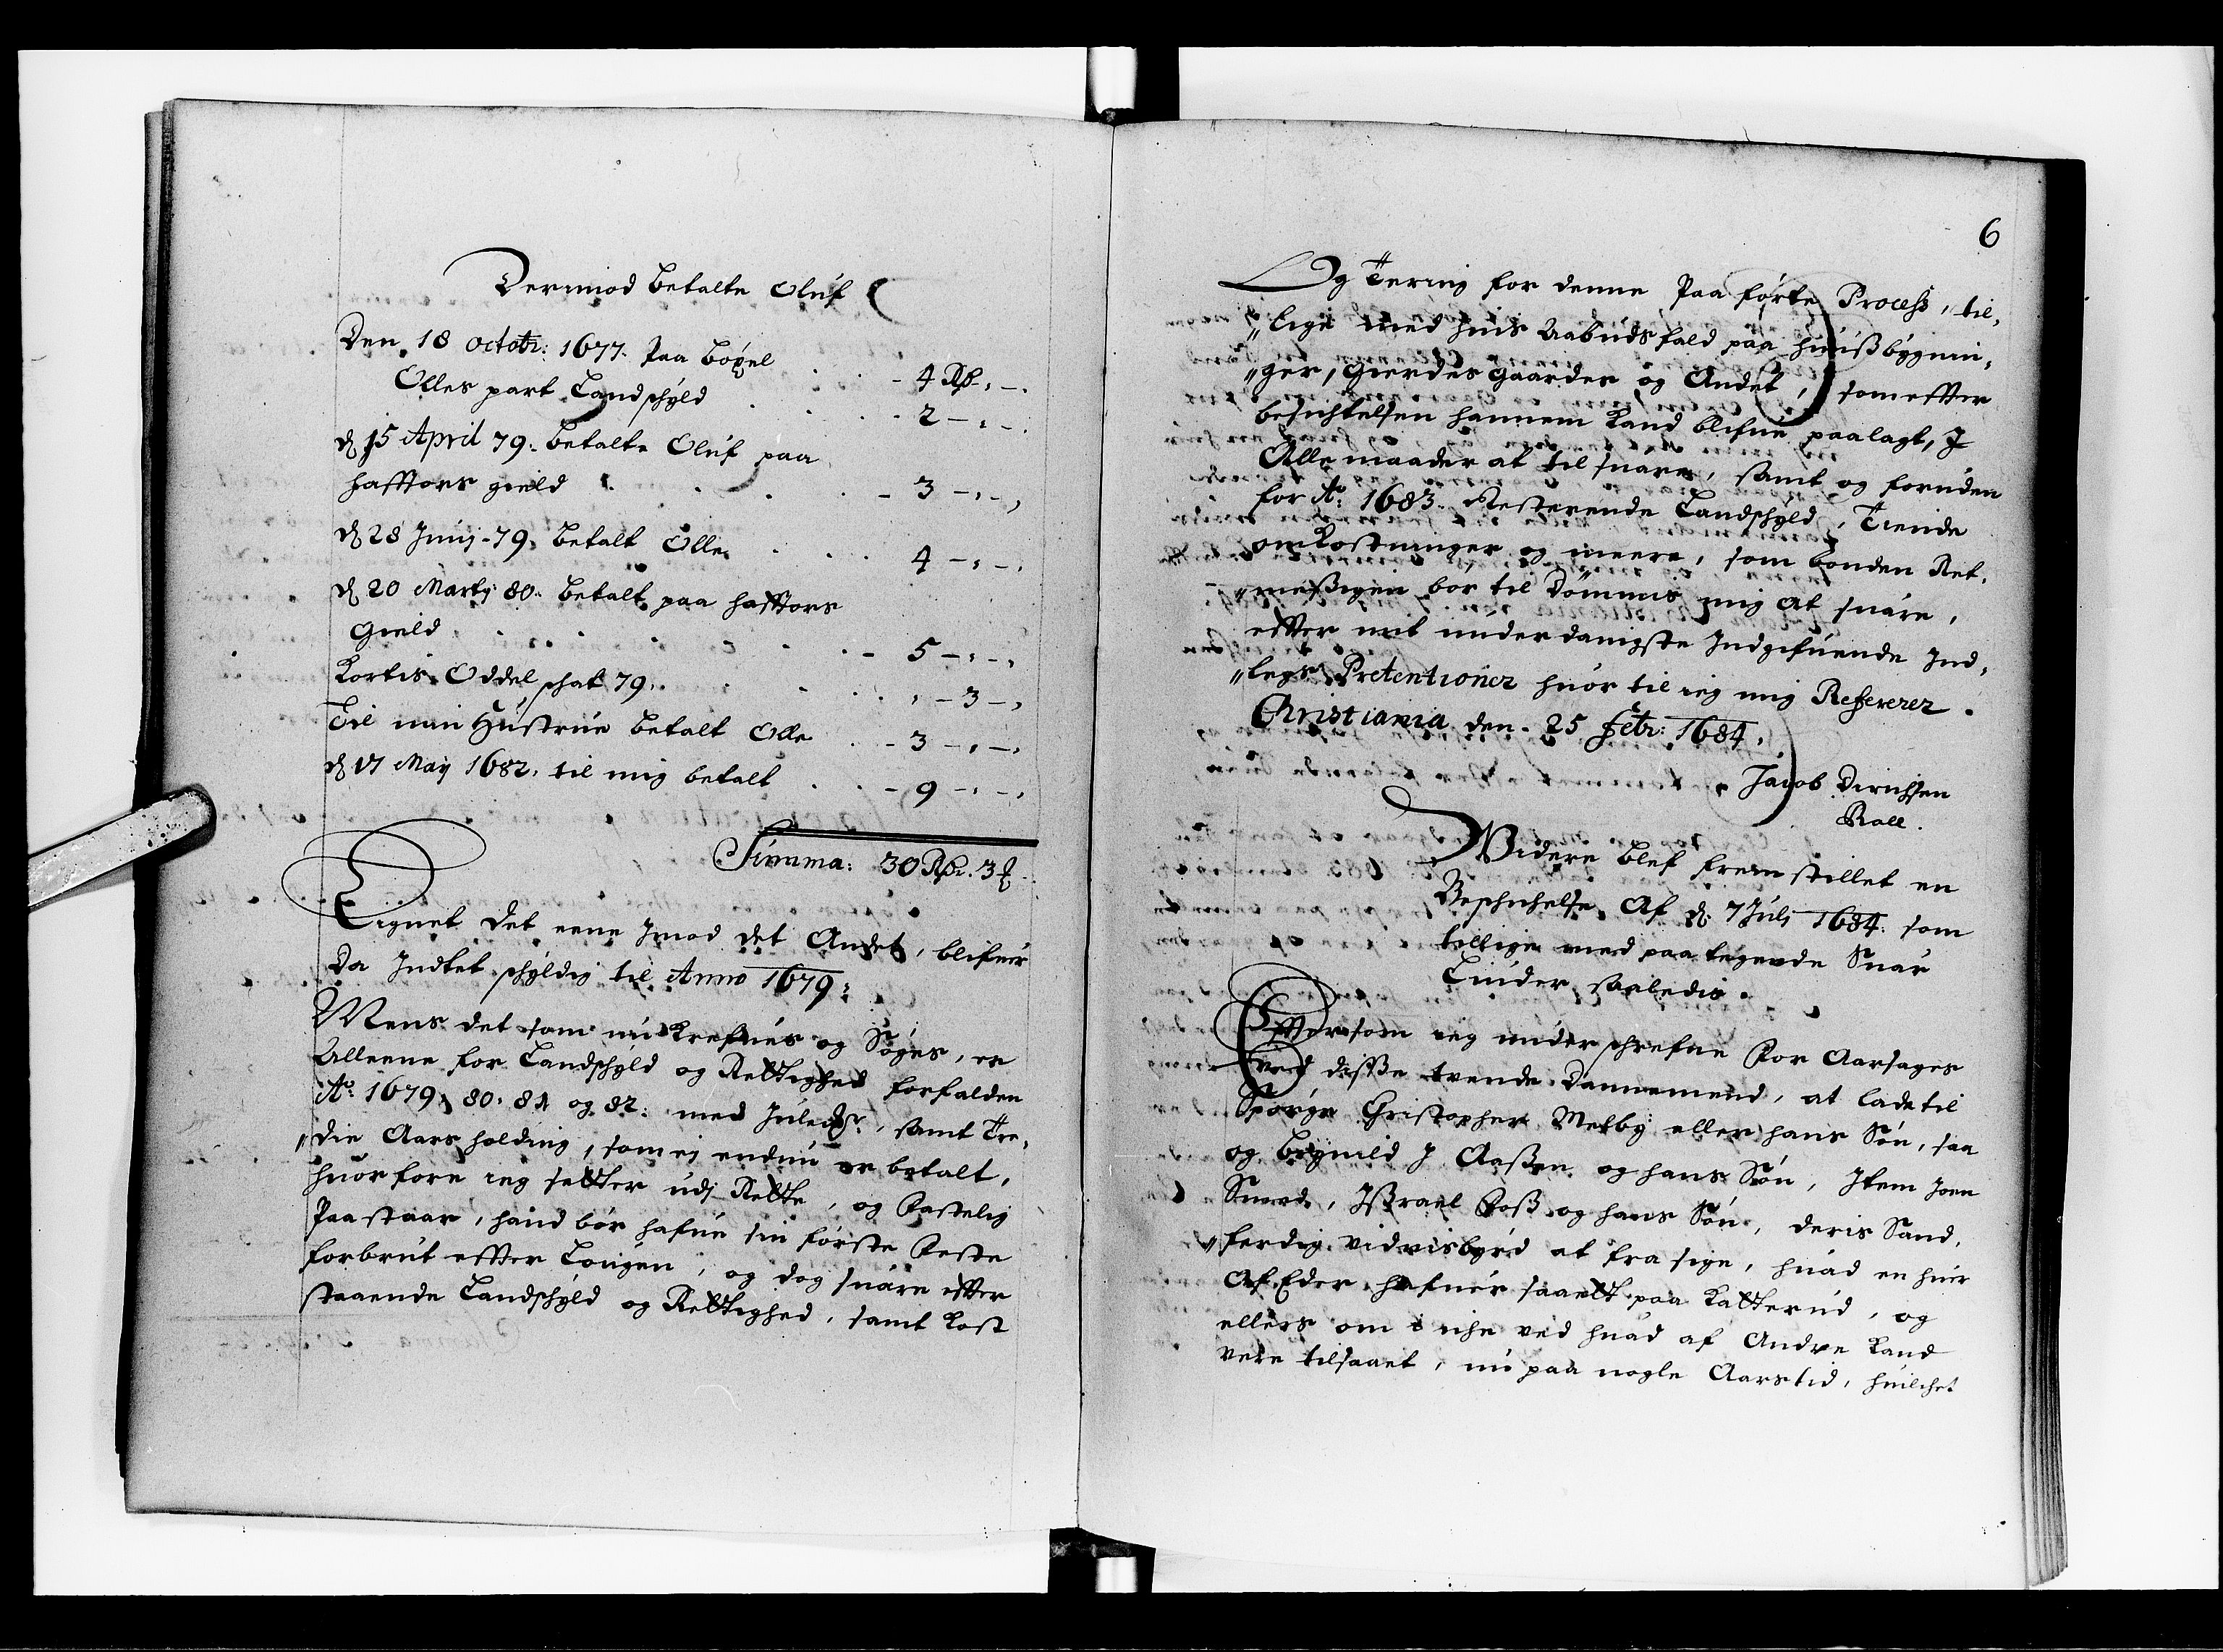 Derimod betalte Oluf
Den 18 octobr: 1677. Paa böxel
- 4 Rdr - , - .
Olles part Landschyld
- 2 - , - .
d 15 April 79. betalte Oluf paa
hafftors gield
- 3 - , - ,
d 28 Junij - 79. betalt Olle
4 - , - ,
d 20 Martij 80. betalt paa hafftors
Gield
- 5 - , - ,
Kortis Oddelschat 79.
, - 3 - ,
Til min Hustrue betalt Olle
- 3 - , - ,
d 17 Maij 1682. til mig betalt
- 9 - , - ,
Summa: 30 Rdr. 3
Eignet det eene Imod det Andet, blifuer
da Indtet schyldig til Anno 1679:
Mens det som nu Krefues og Söges, er
Alleene for Landschyld og Rettighed forfalden
Ao: 1679, 80. 81 og 82: med samt Tre,,
,,die Aars holding, som ej endnu er betalt,
huorfore ieg setter udj Rette, og fastelig
Paastaar, hand bör hafue sin förste feste
forbrut effter Lougen, og dog suare effter
staaende Landschyld og Rettighed, samt Kost
6
Og Tering for denne Paaförte Process, til,,
,,lige med huis Aabudsfald paa huußbygnin,,
,,ger, Gierdesgaarder og Andet, som effter
besichtelsen hannem Kand blifue paalagt, I
Alle maader at tilsuare, samt og foruden
for Ao: 1683. Resterende Landschyld, Tiende
omkostninger og meere, som bonden Ret,,
,,messigen bör til Dömmis mig at suare,
effter mit underdanigste Indgifuende Ind,,
,,legs Pretentioner huor til ieg mig Refererer.
Christiania den. 25 Febr: 1684.
Jacob Dirichsen
Rall.
Widere blef fremstillet en
Beschichelse Af d. 7 Julj 1684. som
tillige med paategnede Suar
Liuder saaledis.
Effttersom ieg underschrefne for Aarsages
ved disse tvende Dannemend, at lade til
Spörge Christopher Melby eller hans Sön, saa
og I Aassen og hans Sön, Item Joen
Smed, Jssrael foß og hans Sön, deris Sand,,
,,ferdig vidnisbyrd at fra sige, huad en huer
Af Eder hafuer saaelt paa Katterud, og
ellers om i iche ved huad af Andre Kand
vere tilsaaet, nu paa nogle Aars tid, huilchet